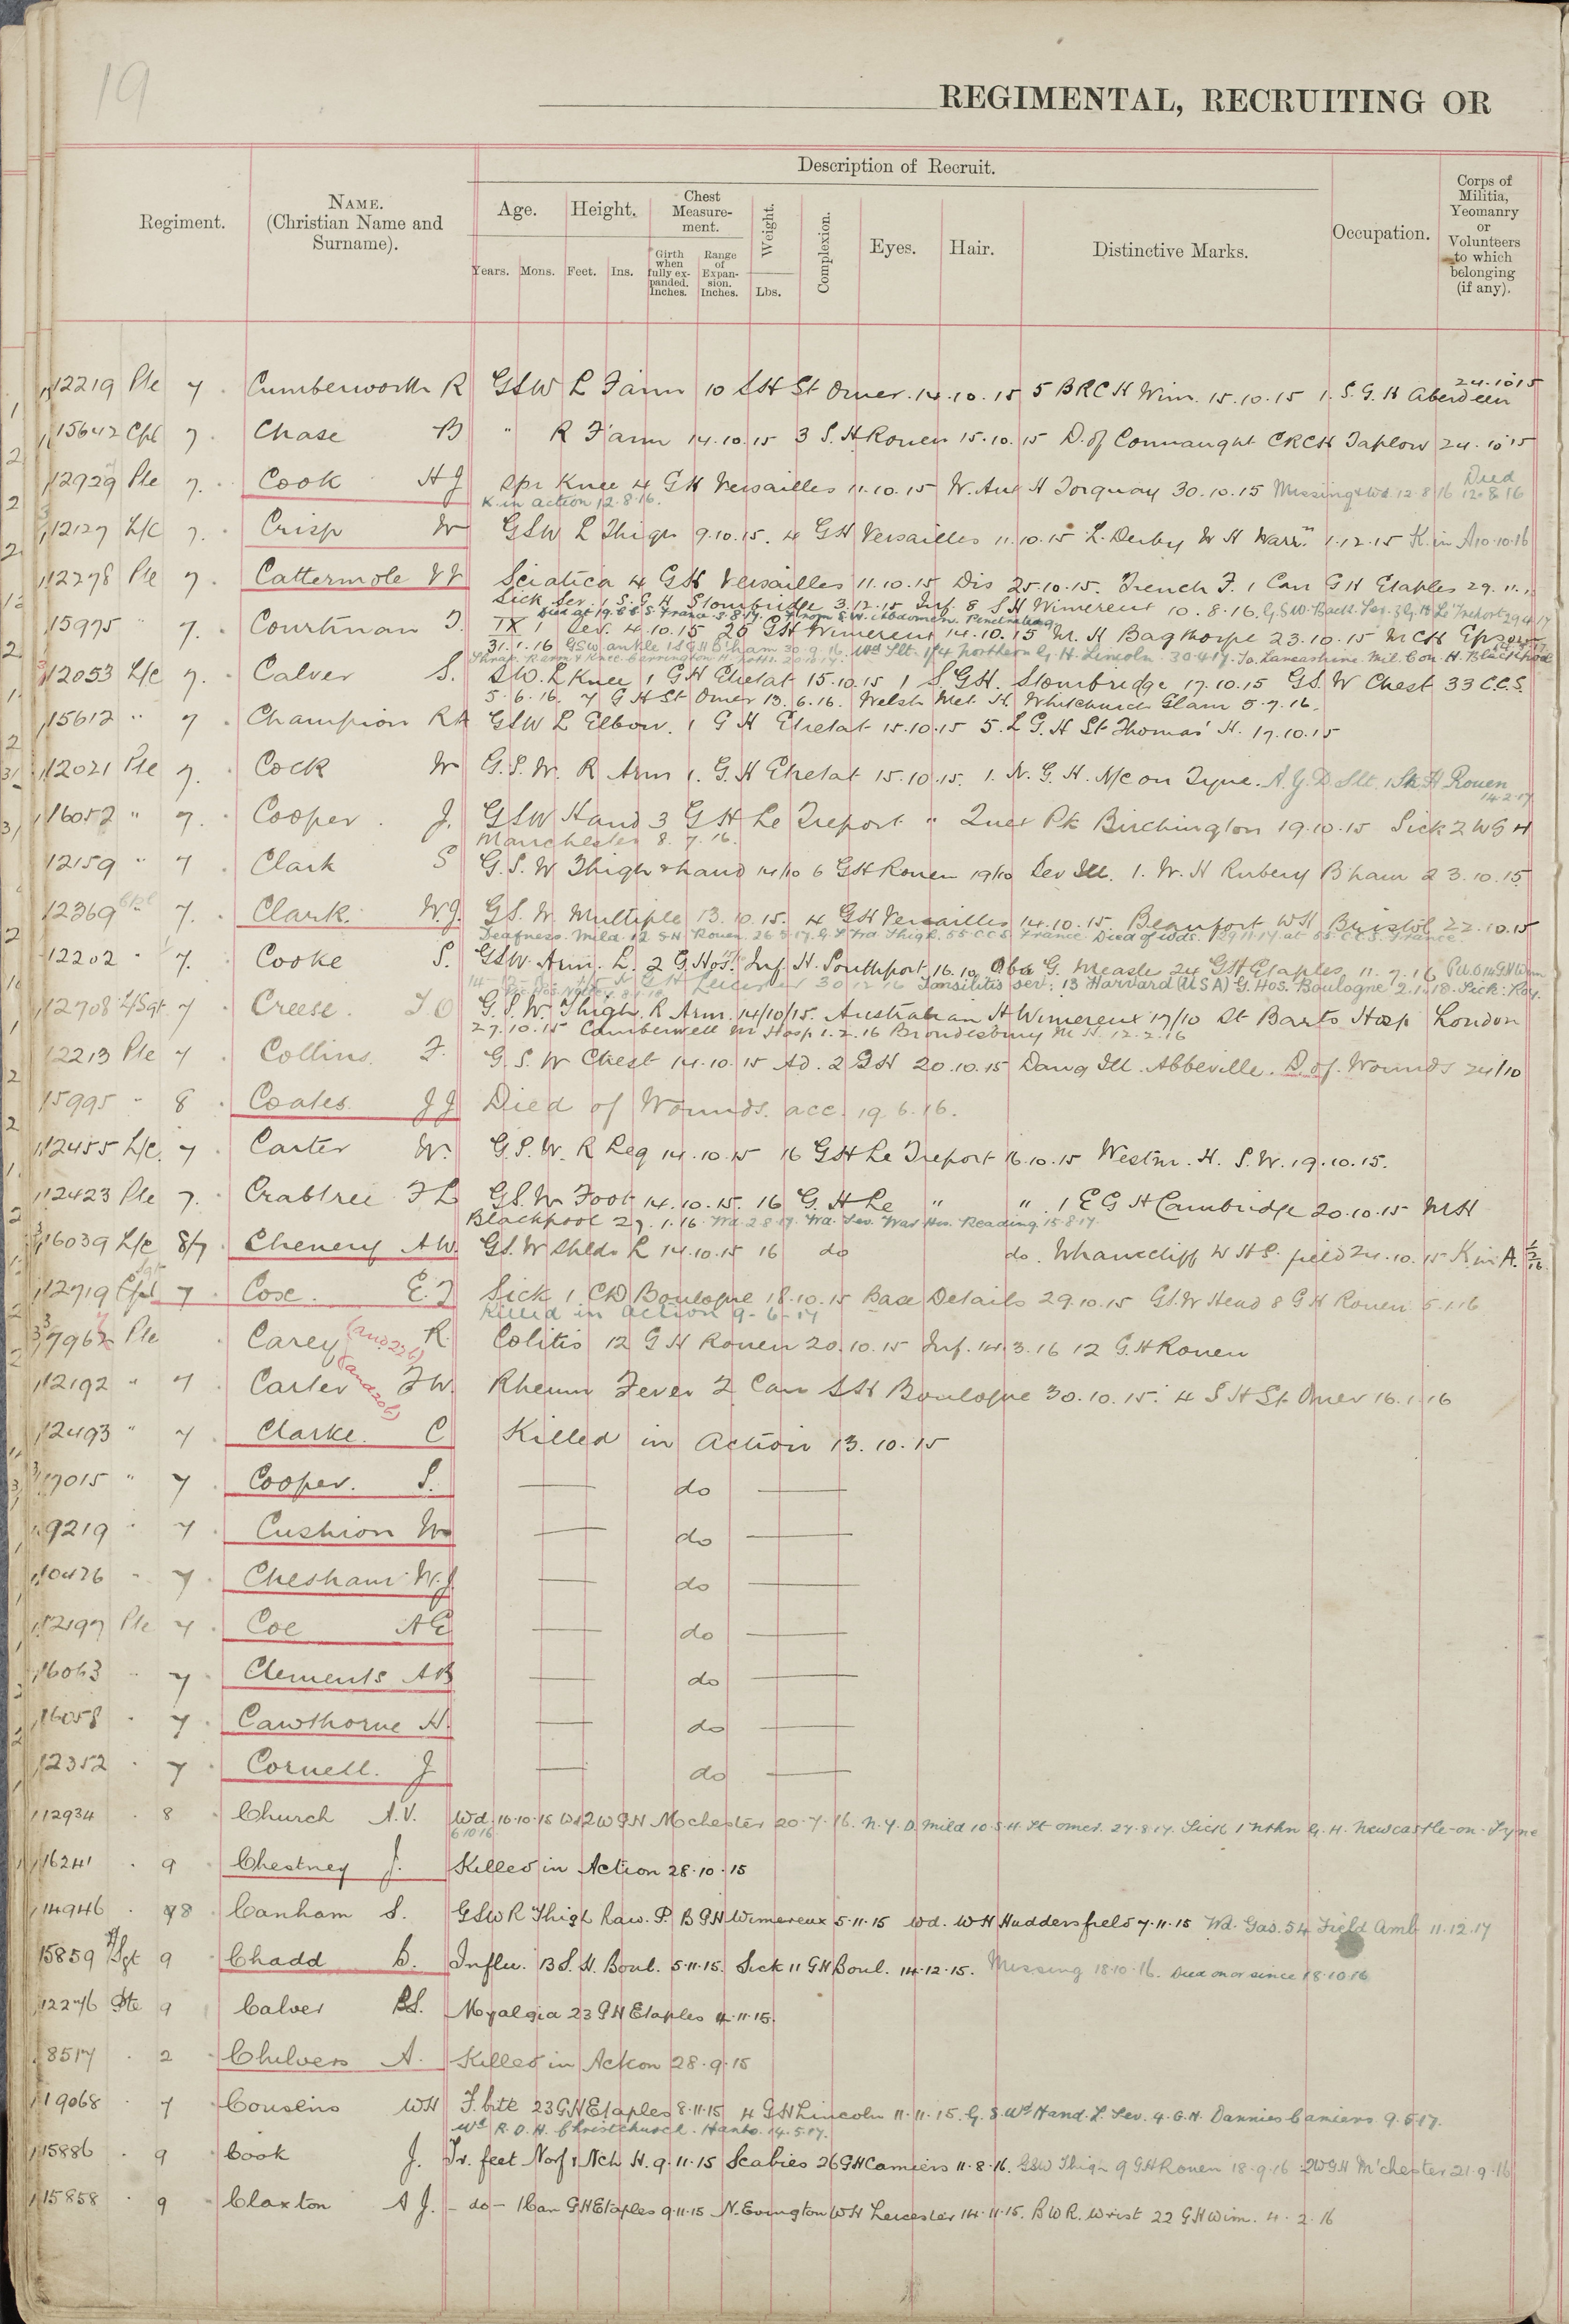 19
REGIMENTAL, RECRUITING OR
Description of Recruit.
Regiment.
NAME.
(Christian Name and
Surname).
Age.
Height.
Chest
Measure-
ment.
Weight.
Complexion.
Eyes.
Hair.
Distinctive Marks.
Occupation.
Corps of
Militia,
Yeomanry
or
Volunteers
to which
belonging
(if any).
Years.
Mons.
Feet.
Ins.
Girth
when
fully ex-
panded.
Inches.
Range
of
Expan-
sion.
Inches.
Lbs.
24.10.15
12219 Pte 7 Cumberworth R GSW L F'arm 10 SH St Omer. 14.10.15 5 BRCH Wim. 15.10.15 1. S.G.H Aberdeen
15642 Cpl 7. Chase B " R F'arm 14.10.15 3 S.H Rouen 15.10.15 D. of Connaught CRCH Taplow 24.10.15
12929 Pte 7. Cook HJ Spr Knee 4 GH Versailles 11.10.15 W. Aux H Torquay 30.10.15 Missing & Wd 12.8.16 Died 12.8.16
K. in action 12.8.16.
12127 L/C 7. Crisp W GSW L Thigh 9.10.15. 4 GH Versailles 11.10.15 L. Derby W H Warrn 1.12.15 K. in A 10.10.16
12278 Pte 7. Cattermole W Sciatica 4 GH Versailles 11.10.15 Dis 25.10.15. Trench F. 1 Can GH Etaples 29.11.15
Sick Sev. 1 S.G.H Stourbridge 3.12.15 Inf. 8 SH Wimereux 10.8.16. G.S.W. Back. Sev. 3 G.H. Le Treport 29.4.17
Died at 19 CCS France 3.8.17. from S.W. Abdomen. Penetrating
15975 " 7. Courtman T. IX 1 Sev. 4.10.15 25 GH Wimereux 14.10.15 M. H Bagthorpe 23.10.15 MCH Epsom
31.1.16 GSW ankle 1 S G H B'ham 30.9.16. Wd Slt. 1/4 Northern G.H. Lincoln. 30.4.17. To. Lancashire. Mil. Con. H. Blackpool
12053 L/C 7. Calver S. SW. L Knee 1 GH Etretat 15.10.15 1 SGH. Stourbridge 17.10.15 GS.W Chest 33 C.C.S.
5.6.16. 7 GH St Omer 13.6.16. Welsh Met. H. Whitchurch Glam 5.7.16.
15612 " 7. Champion RA GSW L Elbow. 1 GH Etretat 15.10.15 5. L G.H St Thomas' H. 17.10.15
12021 Pte 7. Cock W G.S.W. R Arm 1. G.H Etretat 15.10.15. 1. N.G.H. N/C on Tyne. N.Y.D Slt. 1 Sta H Rouen
14.2.17
16052 " 7. Cooper. J. GSW Hand 3 GH Le Treport " Quex Pk Birchington 19.10.15 Sick 2 WGH
Manchester 8.7.16.
12159 " 7 Clark S G.S.W Thigh & hand 14/10 6 GH Rouen 19/10 Sev Ill. 1. W.H Rubery B'ham 23.10.15
12369 7. Clark. W.J. GS.W. Multiple 13.10.15. 4 GH Versailles 14.10.15. Beaufort WH Bristol 22.10.15
Deafness. Mild. 12 S.H Rouen. 26.5.17. G.S. Wd Thigh. 55 CCS France. Died of Wds. 29.11.17 at 55 C.C.S. France.
12202 " 7. Cooke S. GSW. Arm. L. 2 G. Hos. Inf. H. Southport 16.10 G. Measle 24 GH Etaples 11.7.16
Leicester 30.12.16 Tonsilitis sev: 13 Harvard (USA) G. Hos. Boulogne 2.1.18. Sick: Roy.
12708 L/Sgt 7 Creese. TO G.S.W. Thigh. R Arm. 14/10/15. Australian H Wimereux 17/10 St Barts Hosp London
27.10.15 Camberwell Mil Hosp 1.2.16 Brondesbury M H. 12.2.16
12213 Pte 7 Collins. F. G.S.W Chest 14.10.15 Ad. 2 SH 20.10.15 Dang Ill. Abbeville. D of. Wounds 24/10
15995 " 8 Coates. JJ Died of Wounds. acc. 19.6.16.
12455 L/C. 7 Carter W. G.S.W. R Leg 14.10.15 16 GH Le Treport 16.10.15 Westmr. H. S.W. 19.10.15.
12423 Pte 7. Crabtree FL GS.W Foot 14.10.15. 16 G.H Le " " . 1 E G H Cambridge 20.10.15 MH
Blackpool 27.1.16. Wd. 2.8.17. Wd. Sev. War Hos. Reading 15.8.17.
16039 L/C 8/7 Chenery AW. GS.W Shldr L 14.10.15 16 do do. Wharncliff W H S. field 24.10.15 K in A.
12719 Cpl 7 Coxe. E.J Sick 1. CD Boulogne 18.10.15 Base Details 29.10.15 GS.W Head 8 GH Rouen 5.1.16
Killed in action 9-6-17
7962 Pte Carey R. Colitis 12 GH Rouen 20.10.15 Inf. 14.3.16 12 G.H Rouen
12192 " 7 Carter FW. Rheum Fever 2 Can SH Boulogne 30.10.15. 4 SH St. Omer 16.1.16
12493 " 7 Clarke. C Killed in Action 13.10.15
17015 " 7 Cooper. S. do
9219 " 7 Cushion W do
10476 " 7 Chesham W.J do
12197 Pte 7 Coe AE do
16063 " 7 Clements AB do
16058 " 7 Cawthorne H. do
12352 " 7 Cornell. J do
12934 . 8 Church A.V. Wd. 16.10.15 Wd 2 WGH Mchester 20.7.16. N.Y.D. mild 10.S.H. St omer. 27.8.17. Sick 1 Nthn G.H. Newcastle-on-Tyne
6.10.16
16241 . 9 Chestney J. Killed in Action 28.10.15
14946 . 8 Canham S. GSW R Thigh Law. P. B GH Wimereux 5.11.15 Wd. WH Huddersfield 7.11.15 Wd. Gas. 54 Field Amb 11.12.17
15859 Sgt 9 Chadd B. Influ. 13 S.H. Boul. 5.11.15. Sick 11 GH Boul. 14.12.15. Missing 18.10.16. Died on or since 18.10.16
12276 Pte 9 Calver S. Myalgia 23 GH Etaples 4.11.15.
8517 . 2 Chilvers A. Killed in Action 28.9.15
19068 . 7 Cousins WH F. bite 23 GH Etaples 8.11.15 4 GH Lincoln 11.11.15. G.S. Wd Hand. L. Sev. 4. G.H. Dannes Camiers 9.5.17.
Wd. R.D.H. Christchurch. Hants. 14.5.17.
15886 . 9 Cook J. Tr. feet Norf & Nch H. 9.11.15 Scabies 26 GH Camiers 11.8.16. GSW Thigh 9 GH Rouen 18.9.16 2 WGH M'chester 21.9.16
15858 . 9 Claxton AJ. - do - 1 Can GH Etaples 9.11.15 N. Evington WH Leicester 14.11.15. BWR. Wrist 22 GH Wim. 4.2.16